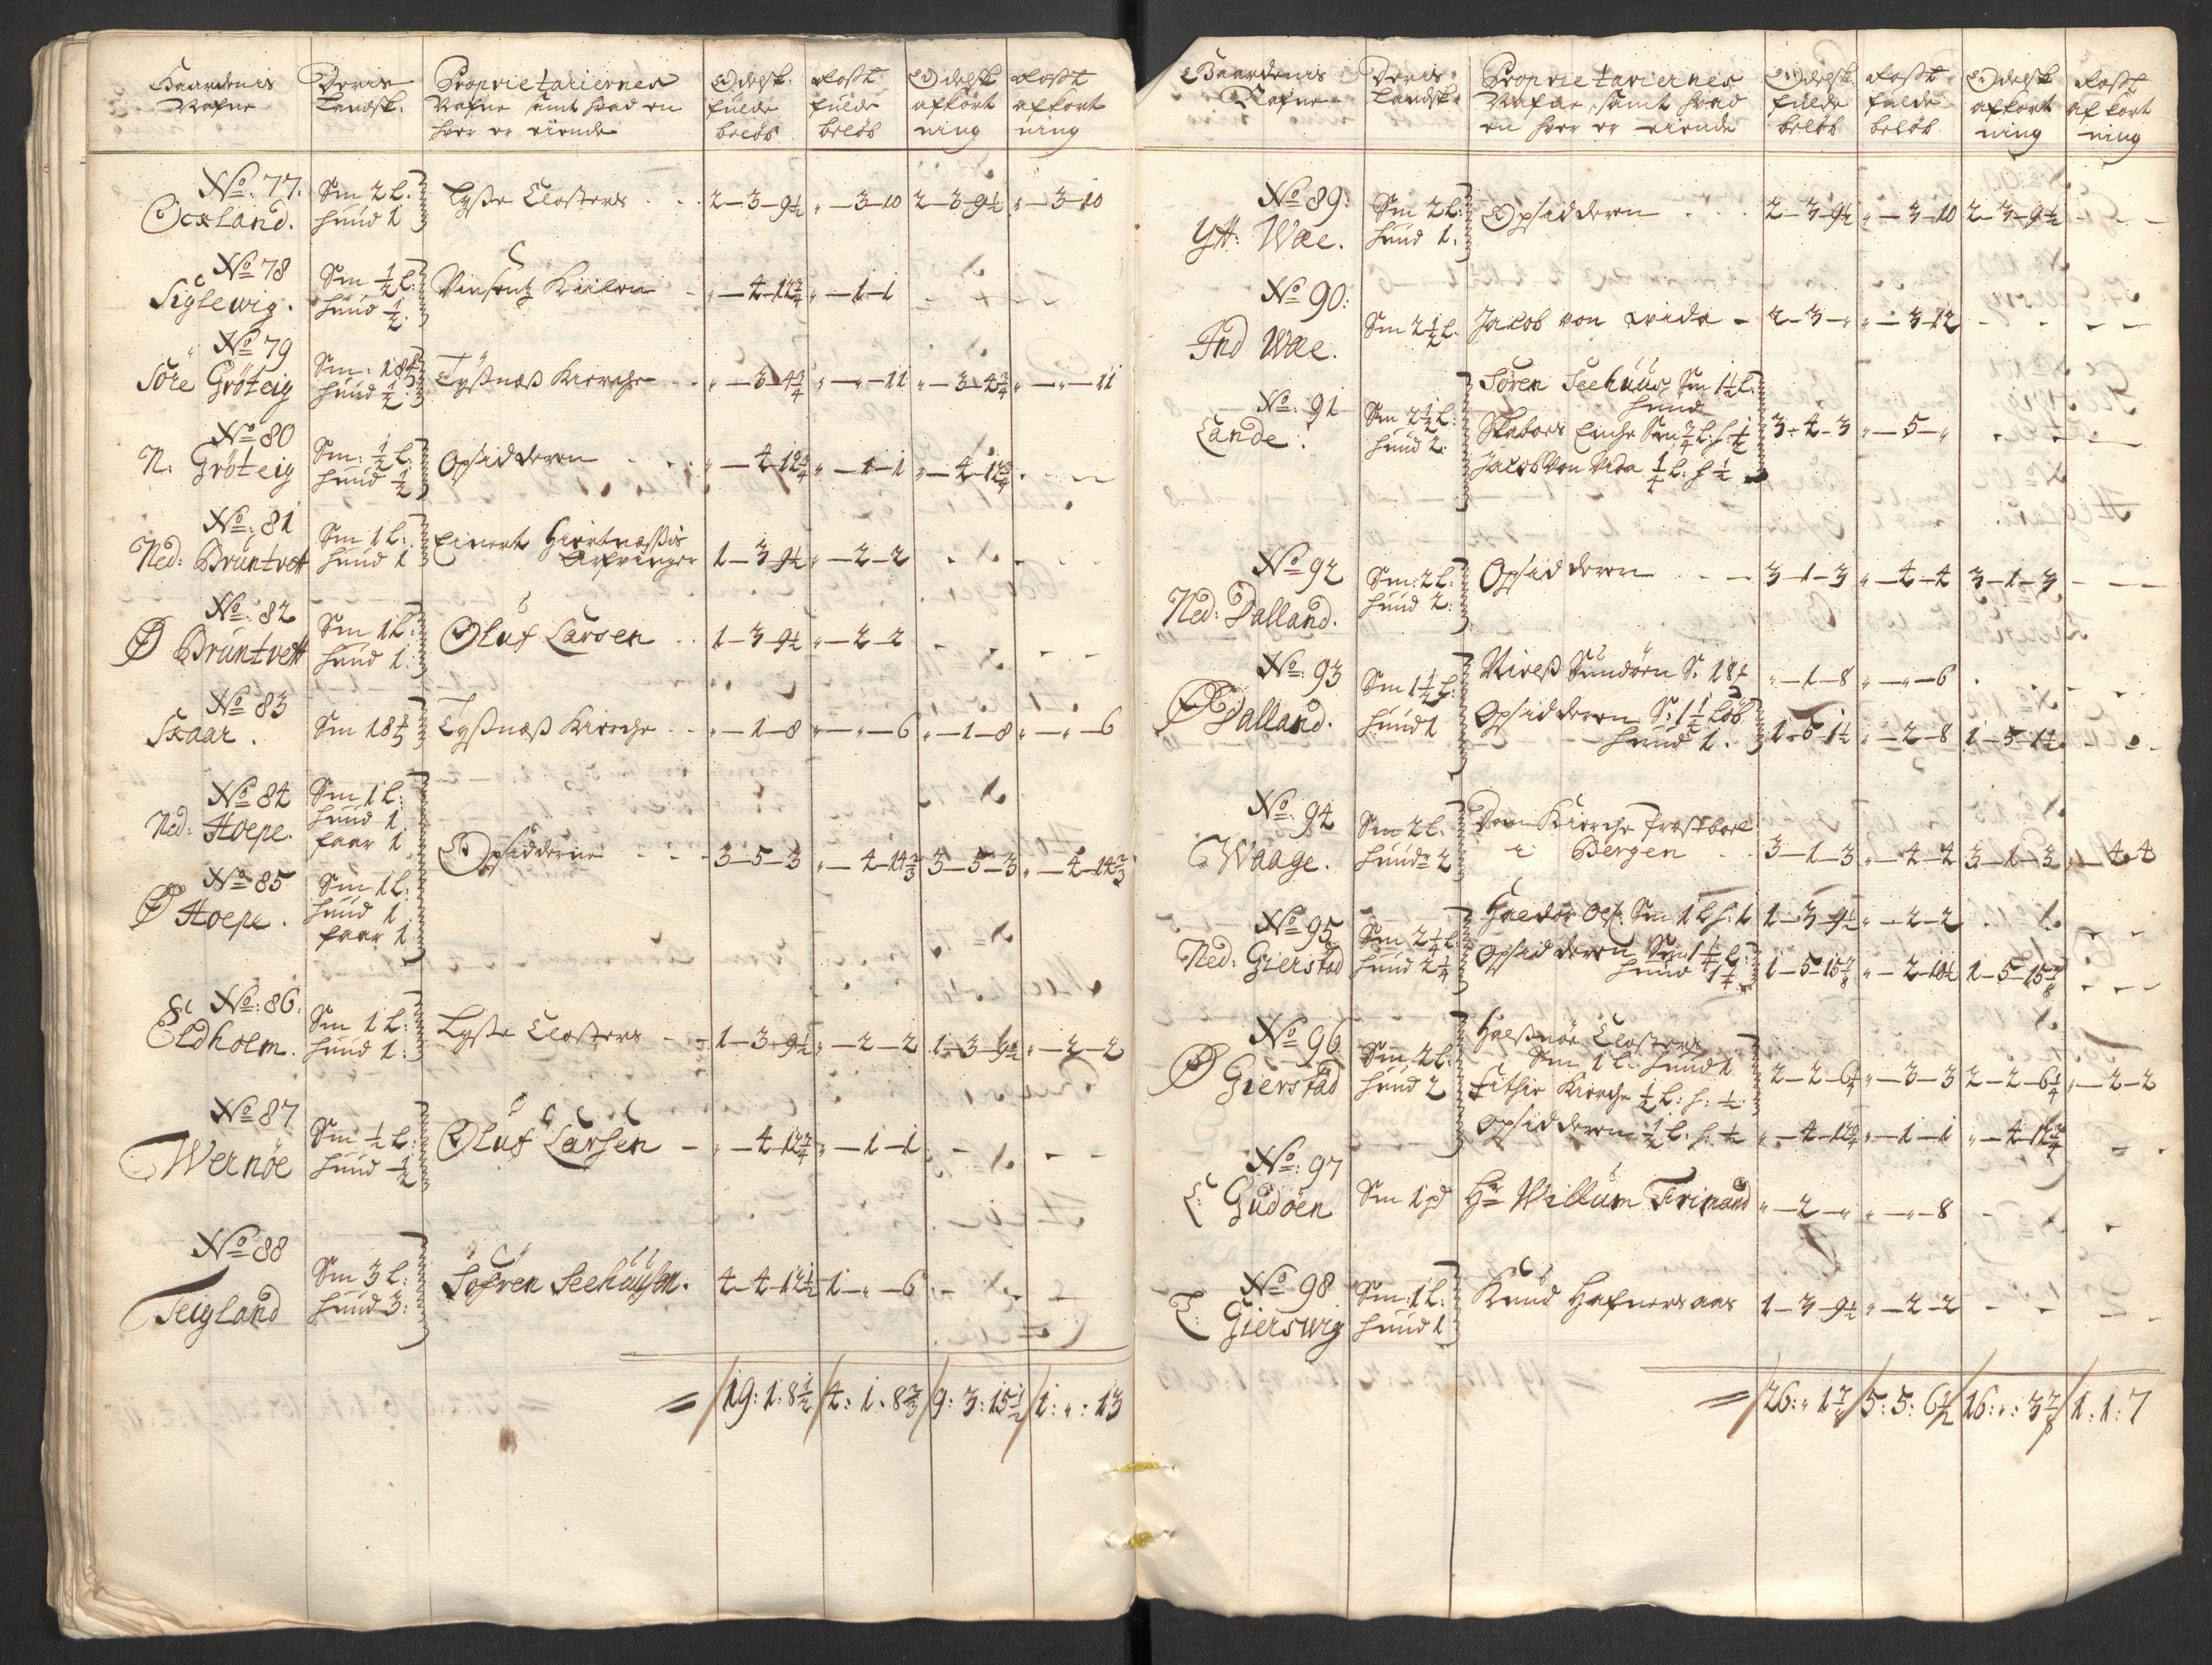 Gaardenis Nafne
Deris Landsk:
Proprietariernes Nafne samt hvad en hver er eiende
Odelsk. fulde beløb
Rostt. fulde beløb
Odelsk afkortning
Rostt afkortning
No: 77.
Oexland.
Sm 2 l:
Huud 1
Lysse Closters
2-3-9½ „-3-10 2-3-9½ „-3-10
No 78
Siglewig.
Sm ½ l:
Huud ½
Vinsentz Kiilen
„-4-12¾ „-1-1
No 79
Søre Grøteig
Huud ½
Tyssnæss Kierche
„-3-4¾ „-„-11 „-3-4¾ „-„-11
No 80
N: Grøteig
Sm: ½ l:
Huud ½
Opsidderen
„-4-12¾ „-1-1 „-4-12¾
No: 81
Ned: Bruntvett
Sm 1 l:
Huud 1
Einert Hiertnæssis
Arfvinger 1-3-9½ „-2-2
No: 82
Ø Bruntvett
Sm 1 l:
Huud 1
Oluf Larsen
1-3-9½ „-2-2
No 83
Skaar.
Tyssnæss Kierche
„-1-8 „-„-6 „-1-8 „-„-6
No 84
Ned: Hoepe.
Sm 1 l:
Huud 1
faar 1
Opsidderne
3-5-3 „-4-14⅔ 3-5-3 „-4-14⅔
No 85
Ø Hoepe.
Sm 1 l:
Huud 1
faar 1
No: 86.
Eldholm.
Sm 1 l:
Huud 1:
Lysse Closters
1-3-9½ „-2-2 1-3-9½ „-2-2
No 87
Wernöe
Sm ½ l:
Huud ½
Oluf Larsen
„-4-12¾ „-1-1
No 88
Teigland
Sm 3 l:
Huud 3:
Sofren Seehuusen.
4-4-12½ 1-„-6
19:1:8½ 4:1:8⅔ 9:3:15½ 1:„:13
Gaardenis Nafne
Deris Landsk.
Proprietariernes Nafne, samt hvad en hver er eiende
Odelsk. fulde beløb
Rostt. fulde beløb
Odelsk afkortning
Rostt afkortning
No 89:
Ytt: Wæe.
Sm 2 l:
Huud 1.
Opsidderen
2-3-9½ „-3-10 2-3-9½
No 90:
Ind Wæe.
Sm 2½ l.
Jacob von Wida
2-3-„ „-3-12
No: 91
Lande.
Sm 2½ l:
Huud 2
Søren Seehuus Sm 1½ l:
Huud
Skabers Enche Sm ¾ l: h: ½
3-4-3 „-5-„
Jacob von Wida ¼ l: h ½
No 92
Ned: Dalland.
Sm: 2 l:
Huud 2:
Opsidderen
3-1-3 „-4-4 3-1-3
No: 93
Ø Dalland.
Sm 1½ l:
Huud 1
„-1-8 „-„-6
Opsidderen S: 1¼ Løb
Huud 1. 1-5-1½ „-2-8 1-5-1½
No: 94
Waage.
Sm 2 l.
Huud 2
Dom Kierche
i Bergen
3-1-3 „-4-4 3-1-3 „-4-4
No 95
Ned: Gierstad
Sm 2¼ l:
Huud 2¼
Haldor Ols: Sm 1 l h: 1 1-3-9½ „-2-2
Opsidderen Sm 1¼ l:
Huud 1¼ 1-5-15⅞ „-2-10½ 1-5-15⅞
No 96
Ø Gierstad
Sm 2 l.
Huud 2
Halssnöe Closters
Sm 1 l. Huud 1
2-2-6¼ „-3-3 2-2-6¼ „-2-2
Fithie Kierche ½ l: h: ½
Opsidderen ½ l. h. ½ „-4-12¾ „-1-1 „-4-12¾
No: 97
Gudöen
Sm 1 pd
Hr Willum Frimand
„-2-„ „-„-8
No 98
Gierswig
Sm: 1 l:
Huud 1
Knud Hafnersaas
1-3-9½ „-2-2
26:„:1⅞ 5:5:6½ 16:„:3⅞ 1:1:7